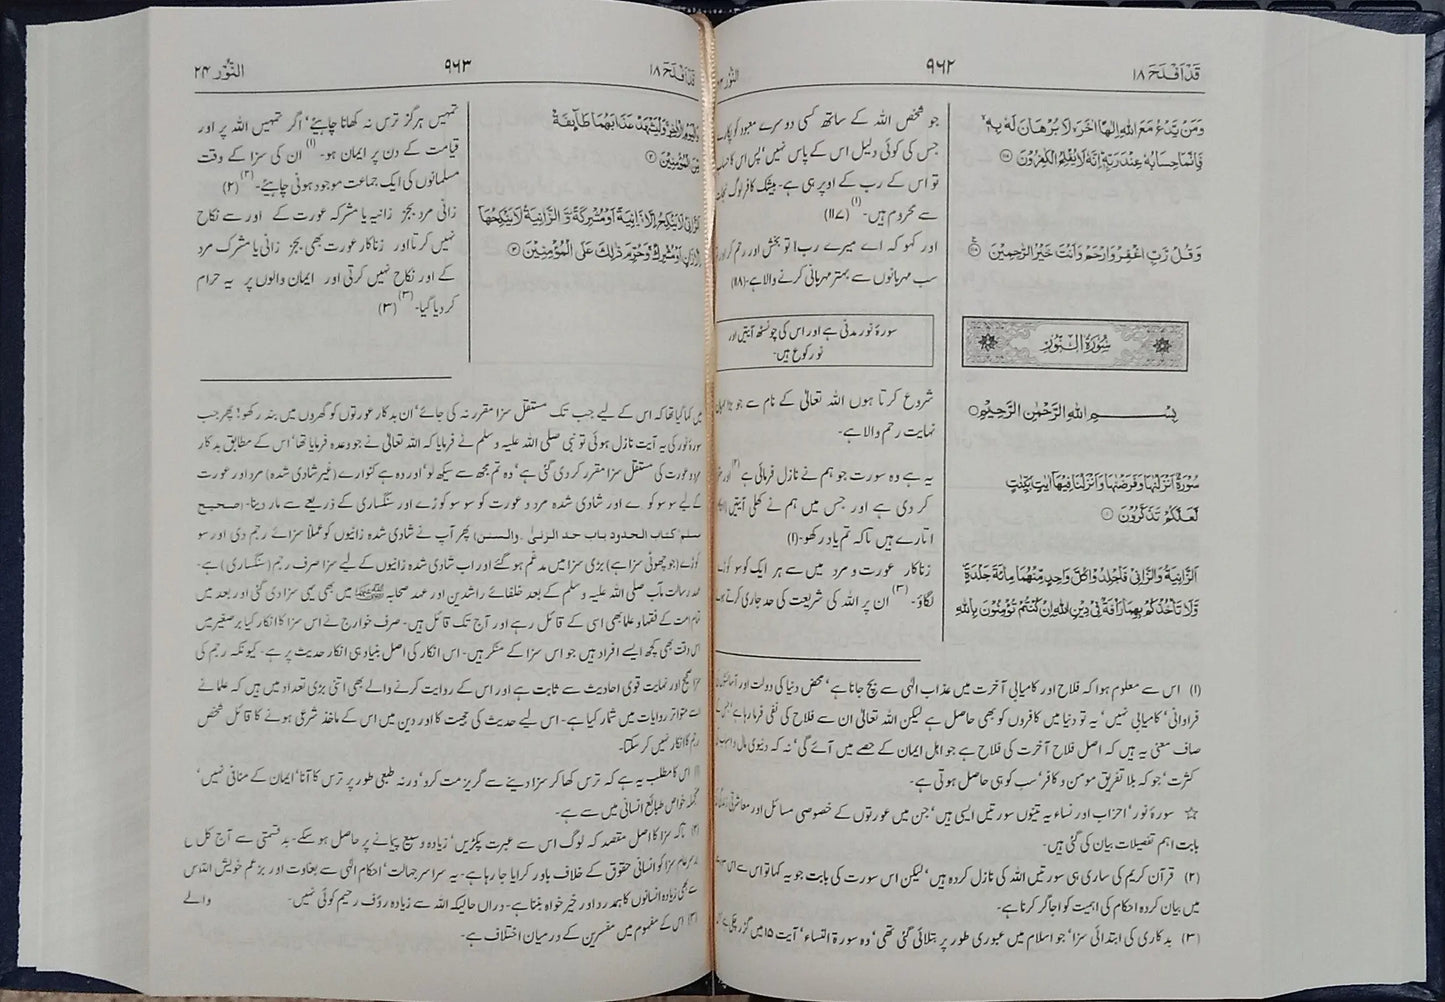 قَدْ اَفْلَحَ ۱۸
۹۶۲
النُّوْر ۲۴
وَمَنْ يَّدْعُ مَعَ اللّٰهِ اِلٰهًا اٰخَرَ ۙ لَا بُرْهَانَ لَهٗ بِهٖ ۙ
فَاِنَّمَا حِسَابُهٗ عِنْدَ رَبِّهٖ ؕ اِنَّهٗ لَا يُفْلِحُ الْكٰفِرُوْنَ ۝
وَقُلْ رَّبِّ اغْفِرْ وَارْحَمْ وَاَنْتَ خَيْرُ الرّٰحِمِيْنَ ۝
سُوْرَةُ النُّوْرِ
بِسْــــــمِ اللّٰهِ الرَّحْمٰنِ الرَّحِيْمِ ۝
سُوْرَةٌ اَنْزَلْنٰهَا وَفَرَضْنٰهَا وَاَنْزَلْنَا فِيْهَآ اٰيٰتٍۭ بَيِّنٰتٍ
لَّعَلَّكُمْ تَذَكَّرُوْنَ ۝
اَلزَّانِيَةُ وَالزَّانِيْ فَاجْلِدُوْا كُلَّ وَاحِدٍ مِّنْهُمَا مِائَةَ جَلْدَةٍ ۠
وَّلَا تَاْخُذْكُمْ بِهِمَا رَاْفَةٌ فِيْ دِيْنِ اللّٰهِ اِنْ كُنْتُمْ تُؤْمِنُوْنَ بِاللّٰهِ
جو شخص اللہ کے ساتھ کسی دوسرے معبود کو پکارے
جس کی کوئی دلیل اس کے پاس نہیں، پس اس کا حساب
تو اس کے رب کے اوپر ہی ہے۔ بیشک کافر لوگ نجات
سے محروم ہیں۔(۱) (۱۱۷)
اور کہو کہ اے میرے رب! تو بخش اور رحم کر اور تو
سب مہربانوں سے بہتر مہربانی کرنے والا ہے۔ (۱۱۸)
سورۂ نور مدنی ہے اور اس کی چونسٹھ آیتیں اور
نو رکوع ہیں۔
شروع کرتا ہوں اللہ تعالیٰ کے نام سے جو بڑا مہربان
نہایت رحم والا ہے۔
یہ ہے وہ سورت جو ہم نے نازل فرمائی ہے(۲) اور مقرر
کر دی ہے اور جس میں ہم نے کھلی آیتیں
اتارے ہیں تاکہ تم یاد رکھو۔ (۱)
زناکار عورت و مرد میں سے ہر ایک کو سو کوڑے
لگاؤ۔(۳) ان پر اللہ کی شریعت کی حد جاری کرتے ہوئے
(۱) اس سے معلوم ہوا کہ فلاح اور کامیابی آخرت میں عذاب الٰہی سے بچ جانا ہے، محض دنیا کی دولت اور آسائشوں کی
فراوانی، کامیابی نہیں، یہ تو دنیا میں کافروں کو بھی حاصل ہے لیکن اللہ تعالیٰ ان سے فلاح کی نفی فرما رہا ہے، جس کے
صاف معنی یہ ہیں کہ اصل فلاح آخرت کی فلاح ہے جو اہل ایمان کے حصے میں آئے گی، نہ کہ دنیوی مال و اسباب کی
کثرت، جو کہ بلا تفریق مومن و کافر، سب کو ہی حاصل ہوتی ہے۔
☆ سورۂ نور، احزاب اور نساء یہ تینوں سورتیں ایسی ہیں، جن میں عورتوں کے خصوصی مسائل اور معاشرتی زندگی کی
بابت اہم تفصیلات بیان کی گئی ہیں۔
(۲) قرآن کریم کی ساری ہی سورتیں اللہ کی نازل کردہ ہیں، لیکن اس سورت کی بابت جو یہ کہا تو اس سے اس
میں بیان کردہ احکام کی اہمیت کو اجاگر کرنا ہے۔
(۳) بدکاری کی ابتدائی سزا، جو اسلام میں عبوری طور پر بتلائی گئی تھی، وہ سورۃ النساء، آیت ۱۵ میں گزر چکی ہے
قَدْ اَفْلَحَ ۱۸
۹۶۳
النُّوْر ۲۴
وَالْيَوْمِ الْاٰخِرِ ۚ وَلْيَشْهَدْ عَذَابَهُمَا طَآىِٕفَةٌ
مِّنَ الْمُؤْمِنِيْنَ ۝
اَلزَّانِيْ لَا يَنْكِحُ اِلَّا زَانِيَةً اَوْ مُشْرِكَةً ۡ وَّالزَّانِيَةُ لَا يَنْكِحُهَآ
اِلَّا زَانٍ اَوْ مُشْرِكٌ ۚ وَحُرِّمَ ذٰلِكَ عَلَى الْمُؤْمِنِيْنَ ۝
تمہیں ہرگز ترس نہ کھانا چاہیئے، اگر تمہیں اللہ پر اور
قیامت کے دن پر ایمان ہو۔(۱) ان کی سزا کے وقت
مسلمانوں کی ایک جماعت موجود ہونی چاہیئے۔(۲) (۲)
زانی مرد بجز زانیہ یا مشرکہ عورت کے اور سے نکاح
نہیں کرتا اور زناکار عورت بھی بجز زانی یا مشرک مرد
کے اور نکاح نہیں کرتی اور ایمان والوں پر یہ حرام
کر دیا گیا۔(۳) (۳)
میں کہا گیا تھا کہ اس کے لیے جب تک مستقل سزا مقرر نہ کی جائے، ان بدکار عورتوں کو گھروں میں بند رکھو! پھر جب
سورۂ نور کی یہ آیت نازل ہوئی تو نبی صلی اللہ علیہ وسلم نے فرمایا کہ اللہ تعالیٰ نے جو وعدہ فرمایا تھا، اس کے مطابق بدکار
مرد و عورت کی مستقل سزا مقرر کر دی گئی ہے، وہ تم مجھ سے سیکھ لو، اور وہ ہے کنوارے (غیر شادی شدہ) مرد اور عورت
کے لیے سو سو کوڑے اور شادی شدہ مرد و عورت کو سو سو کوڑے اور سنگساری کے ذریعے سے مار دینا۔ (صحیح
مسلم، کتاب الحدود باب حد الزنیٰ۔ والسنن) پھر آپ نے شادی شدہ زانیوں کو عملاً سزائے رجم دی اور سو
کوڑے (جو چھوٹی سزا ہے) بڑی سزا میں مدغم ہو گئے اور اب شادی شدہ زانیوں کے لیے سزا صرف رجم (سنگساری) ہے۔
عہد رسالت مآب صلی اللہ علیہ وسلم کے بعد خلفائے راشدین اور عہد صحابہ میں بھی یہی سزا دی گئی اور بعد میں
تمام امت کے فقہا و علما بھی اسی کے قائل رہے اور آج تک قائل ہیں۔ صرف خوارج نے اس سزا کا انکار کیا برصغیر میں
اس وقت بھی کچھ ایسے افراد ہیں جو اس سزا کے منکر ہیں۔ اس انکار کی اصل بنیاد ہی انکار حدیث پر ہے۔ کیونکہ رجم کی
سزا صحیح اور نہایت قوی احادیث سے ثابت ہے اور اس کے روایت کرنے والے بھی اتنی بڑی تعداد میں ہیں کہ علما نے
اسے متواتر روایات میں شمار کیا ہے۔ اس لیے حدیث کی حجیت کا اور دین میں اس کے ماخذ شرعی ہونے کا قائل شخص
رجم کا انکار نہیں کر سکتا۔
اس کا مطلب یہ ہے کہ ترس کھا کر سزا دینے سے گریز مت کرو، ورنہ طبعی طور پر ترس کا آنا، ایمان کے منافی نہیں،
منجملہ خواص طبائع انسانی میں سے ہے۔
(۲) تاکہ سزا کا اصل مقصد کہ لوگ اس سے عبرت پکڑیں، زیادہ وسیع پیمانے پر حاصل ہو سکے۔ بدقسمتی سے آج کل
برسرعام سزا کو انسانی حقوق کے خلاف باور کرایا جا رہا ہے۔ یہ سراسر جہالت، احکام الٰہی سے بغاوت اور بزعم خویش اللہ سے
بھی زیادہ انسانوں کا ہمدرد اور خیر خواہ بننا ہے۔ دراں حالیکہ اللہ سے زیادہ رؤف رحیم کوئی نہیں۔
(۳) اس کے مفہوم میں مفسرین کے درمیان اختلاف ہے۔